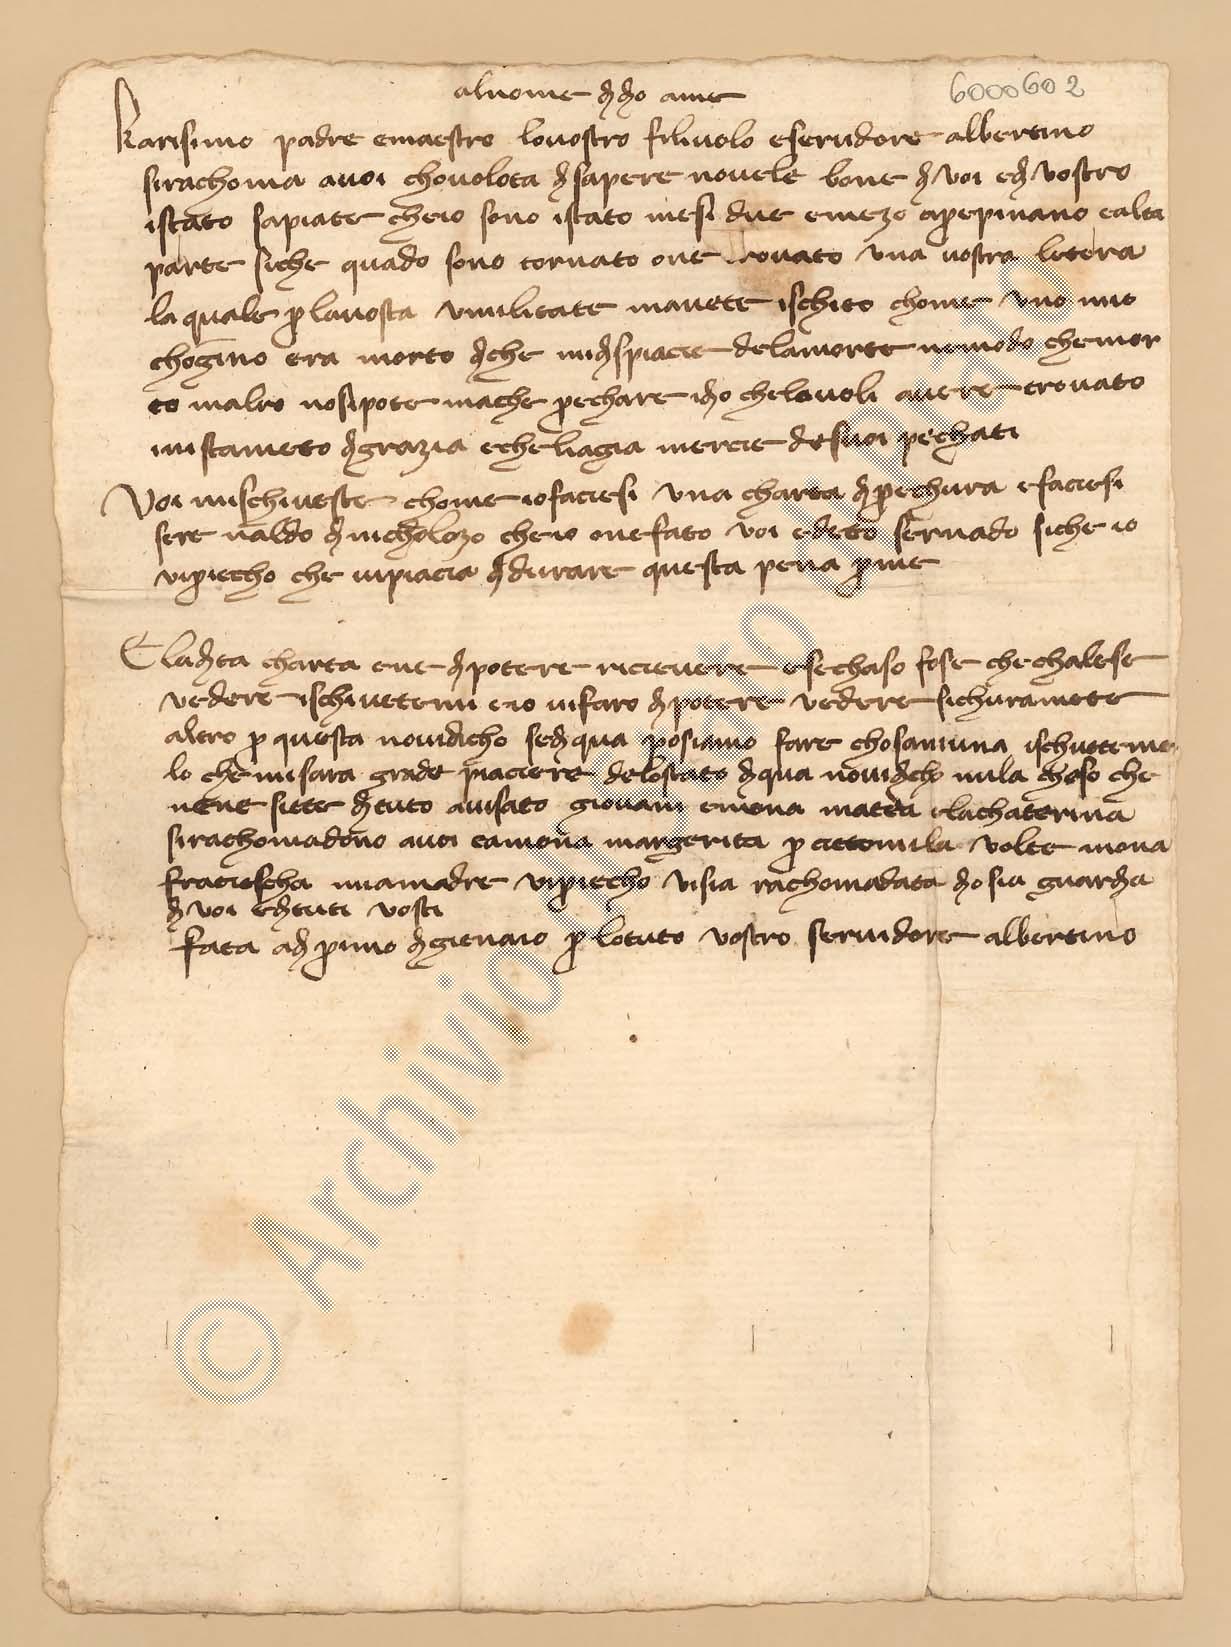 al nome di dio ame
6000602
karisimo padre e maestro lo vostro filiuolo e servidore albertino
si rachoma a voi cho volota di sapere novele bone di voi e di vostro
istato sapiate che io sono istato mesi due e mezo a pepinano e alta
parte siche quado sono tornato one trovato una vostra letera
la quale p la vosta umilitate m avete ischito chome uno mio
chogino era morto di che mi dispiacie dela morte ne modo che mor
to malro no si pote ma che pechare idio che lo voli avere trovato
in istameto di grazia e che li agia mercie de suoi pechati
Voi mi schiveste chome io faciesi una charta di pechura e faciesi
sere naldo di nicholozo che io one fato voi e deto ser nado siche io
vi piecho che vi piacia di durare questa pena p me
E la dita charta ene di potere ricievere e se chaso fose che chaltese
vedere ischivetemi e io vi faro di potere vedere sichuramete
altro p questa no vi dicho se di qua posiamo fare chosa niuna ischiveteme
lo che mi sara grade piaciere de lo stato di qua no vi dicho nula choso che
nene sitte di tuto avisato giovani e mona matea e la chaterina
si rachomadono a voi e a mona margerita p cieto mila volte mona
fraciescha mia madre vi piecho vi sia rachomadata dio sia guardia
di voi e di tuti vosti
fata a di pimo di gienaio p lo tuto vostro servidore albertino
© Archivio di Stato di Prato